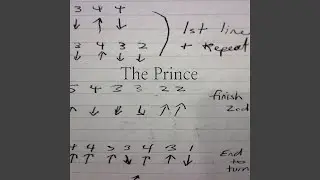 3 4 4
↓ ↑ ↓
1st line
3 4 3 2
+ Repeat
↓ ↑ ↓ ↓
The Prince
4 3 3 2 2
finish
↑ ↓ ↓ ↑ ↑
2nd
4 4 3 3 4 3 1
↑ ↑ ↑ ↓ ↑ ↓ ↑
End
to
turn